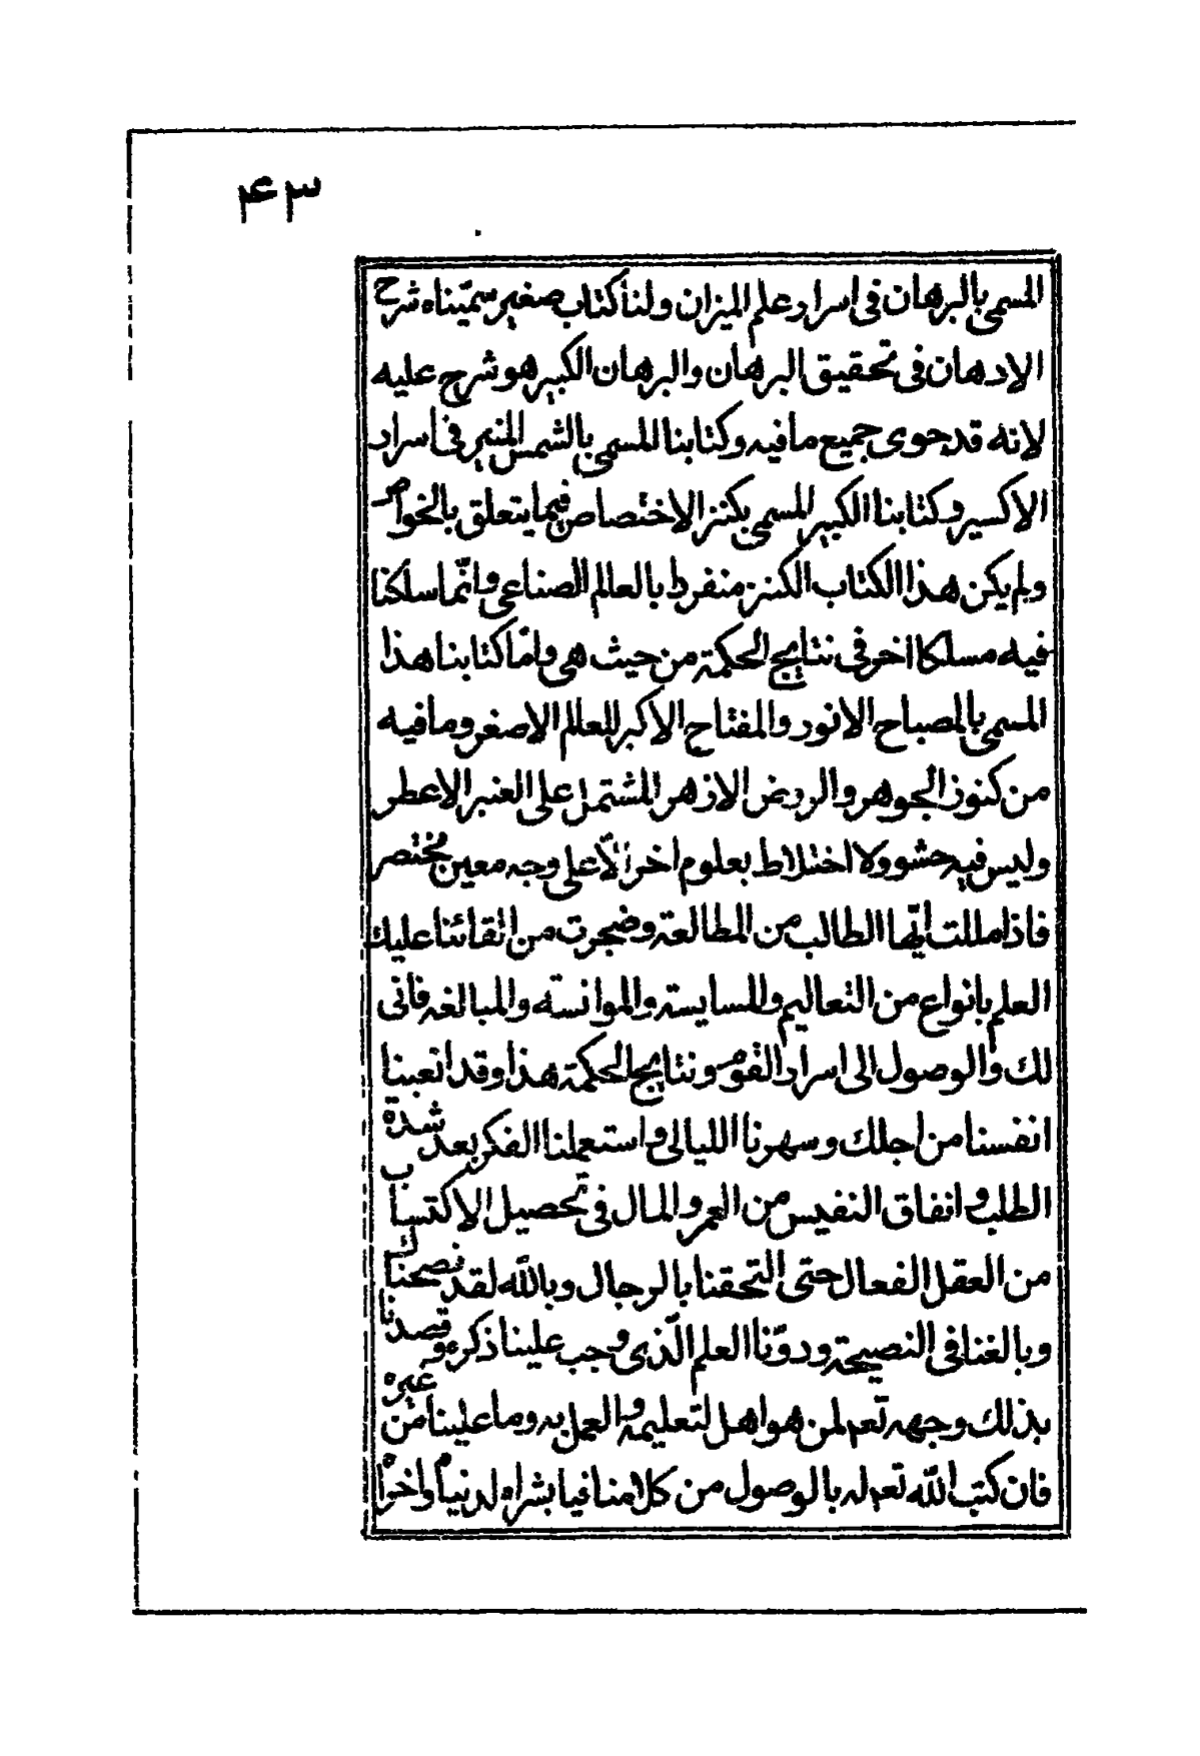 ۴۳
المسمى بالبرهان فى اسرار علم الميزان ولنا كتاب صغير سميّناه شرح
الادهان فى تحقيق البرهان والبرهان الكبير هو شرح عليه
لانه قد حوى جميع ما فيه وكتابنا المسمى بالشمس المنير فى اسرار
الاكسير وكتابنا الكبير المسمى بكنز الاختصاص فيما يتعلق بالخواص
ولم يكن هذا الكتاب الكنز منفرط بالعالم الصناعى وانّما سلكنا
فيه مسلكا اخر فى نتايج الحكمة من حيث هى وامّا كتابنا هذا
المسمى بالمصباح الانور والمفتاح الاكبر للعالم الاصغر وما فيه
من كنوز الجوهر والروض الازهر المشتمل على العنبر الاعطر
وليس فيه حشو ولا اختلاط بعلوم اخر الّا على وجه معين مختصر
فاذا مللت ايّها الطالب من المطالعة وضجرت من القائنا عليك
العلم بانواع من التعاليم والمسايسة والموانسته والمبالغه فانى
لك والوصول الى اسرار القوم ونتايج الحكمة هذا وقد اتعبنا
انفسنا من اجلك وسهرنا الليالى واستعملنا الفكر بعد شدّة
الطلب وانفاق النفيس من العمر والمال فى تحصيل الاكتساب
من العقل الفعال حتى التحقنا بالرجال وبالله لقد نصحناك
وبالغنا فى النصيحة ودوّنا العلم الّذى وجب علينا ذكره وقصدنا
بذلك وجهه تعم لمن هو اهل لتعليمه والعمل به وما علينا من غيره
فان كتب الله تعم له بالوصول من كلامنا فيا بشراه لدنياه واخراه